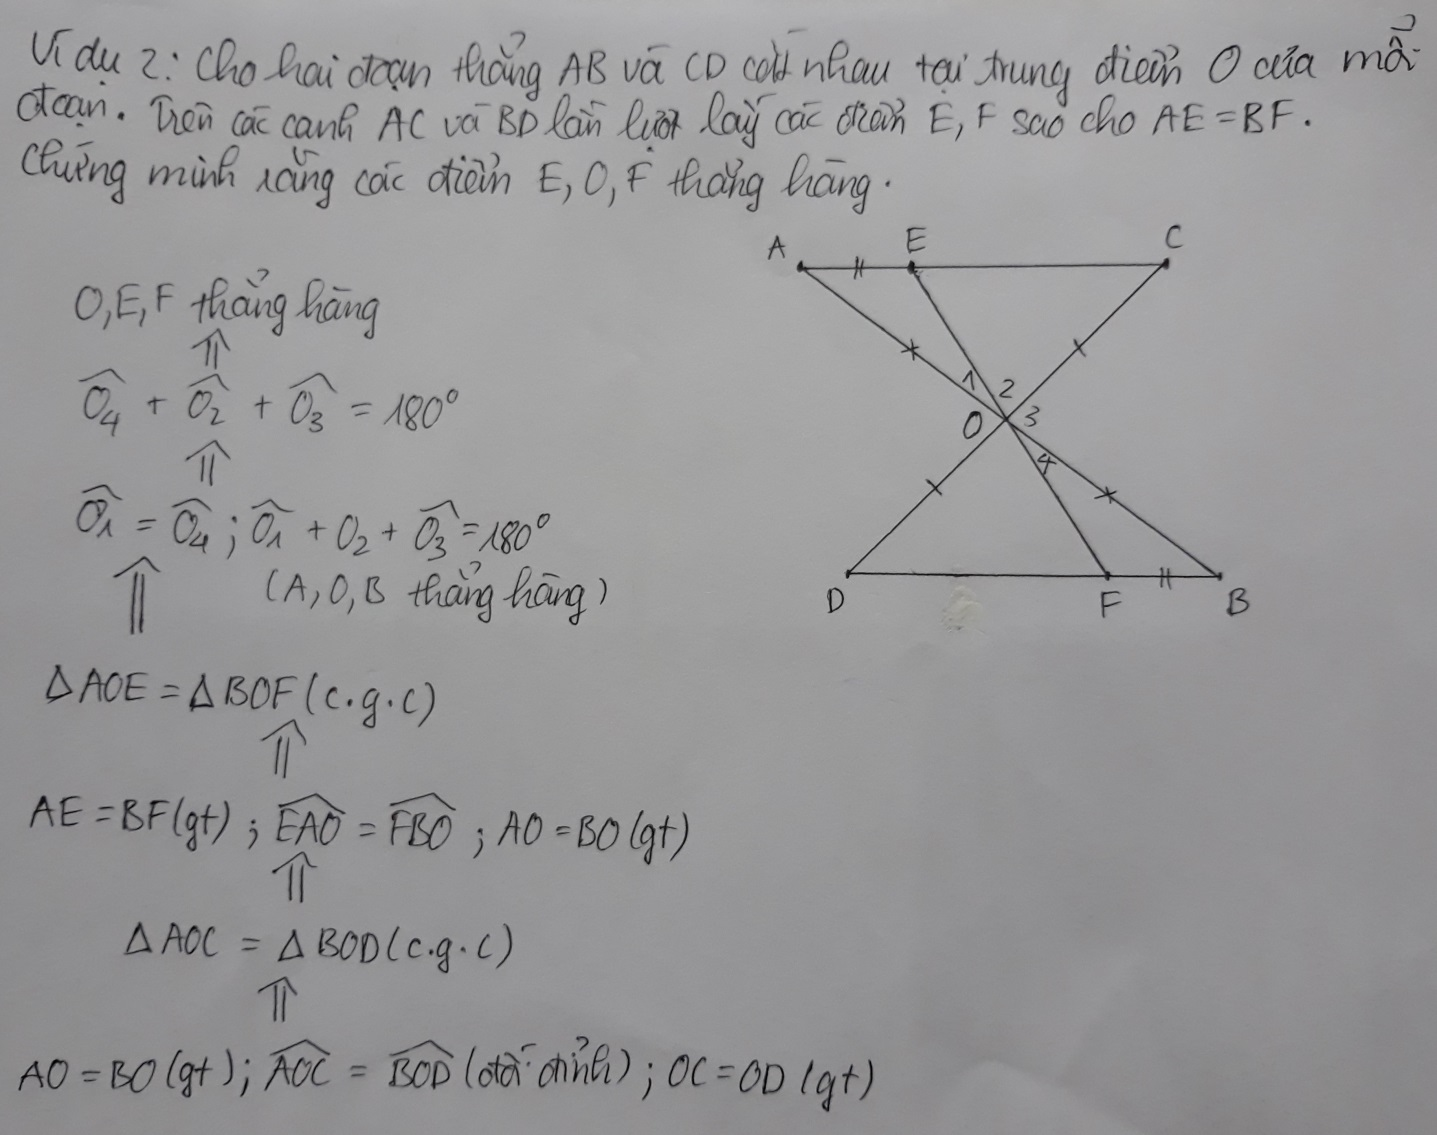 Ví dụ 2: Cho hai đoạn thẳng AB và CD cắt nhau tại trung điểm O của mỗi
đoạn. Trên các cạnh AC và BD lần lượt lấy các điểm E, F sao cho AE = BF.
Chứng minh rằng các điểm E, O, F thẳng hàng.
A E C
O, E, F thẳng hàng
⇑
Ô4 + Ô2 + Ô3 = 180°
1 2
O 3
4
⇑
Ô1 = Ô4 ; Ô1 + O2 + Ô3 = 180°
(A, O, B thẳng hàng)
D F B
⇑
Δ AOE = Δ BOF (c.g.c)
⇑
AE = BF (gt) ; \widehat{EAO} = \widehat{FBO} ; AO = BO (gt)
⇑
Δ AOC = Δ BOD (c.g.c)
⇑
AO = BO (gt) ; \widehat{AOC} = \widehat{BOD} (đối đỉnh) ; OC = OD (gt)